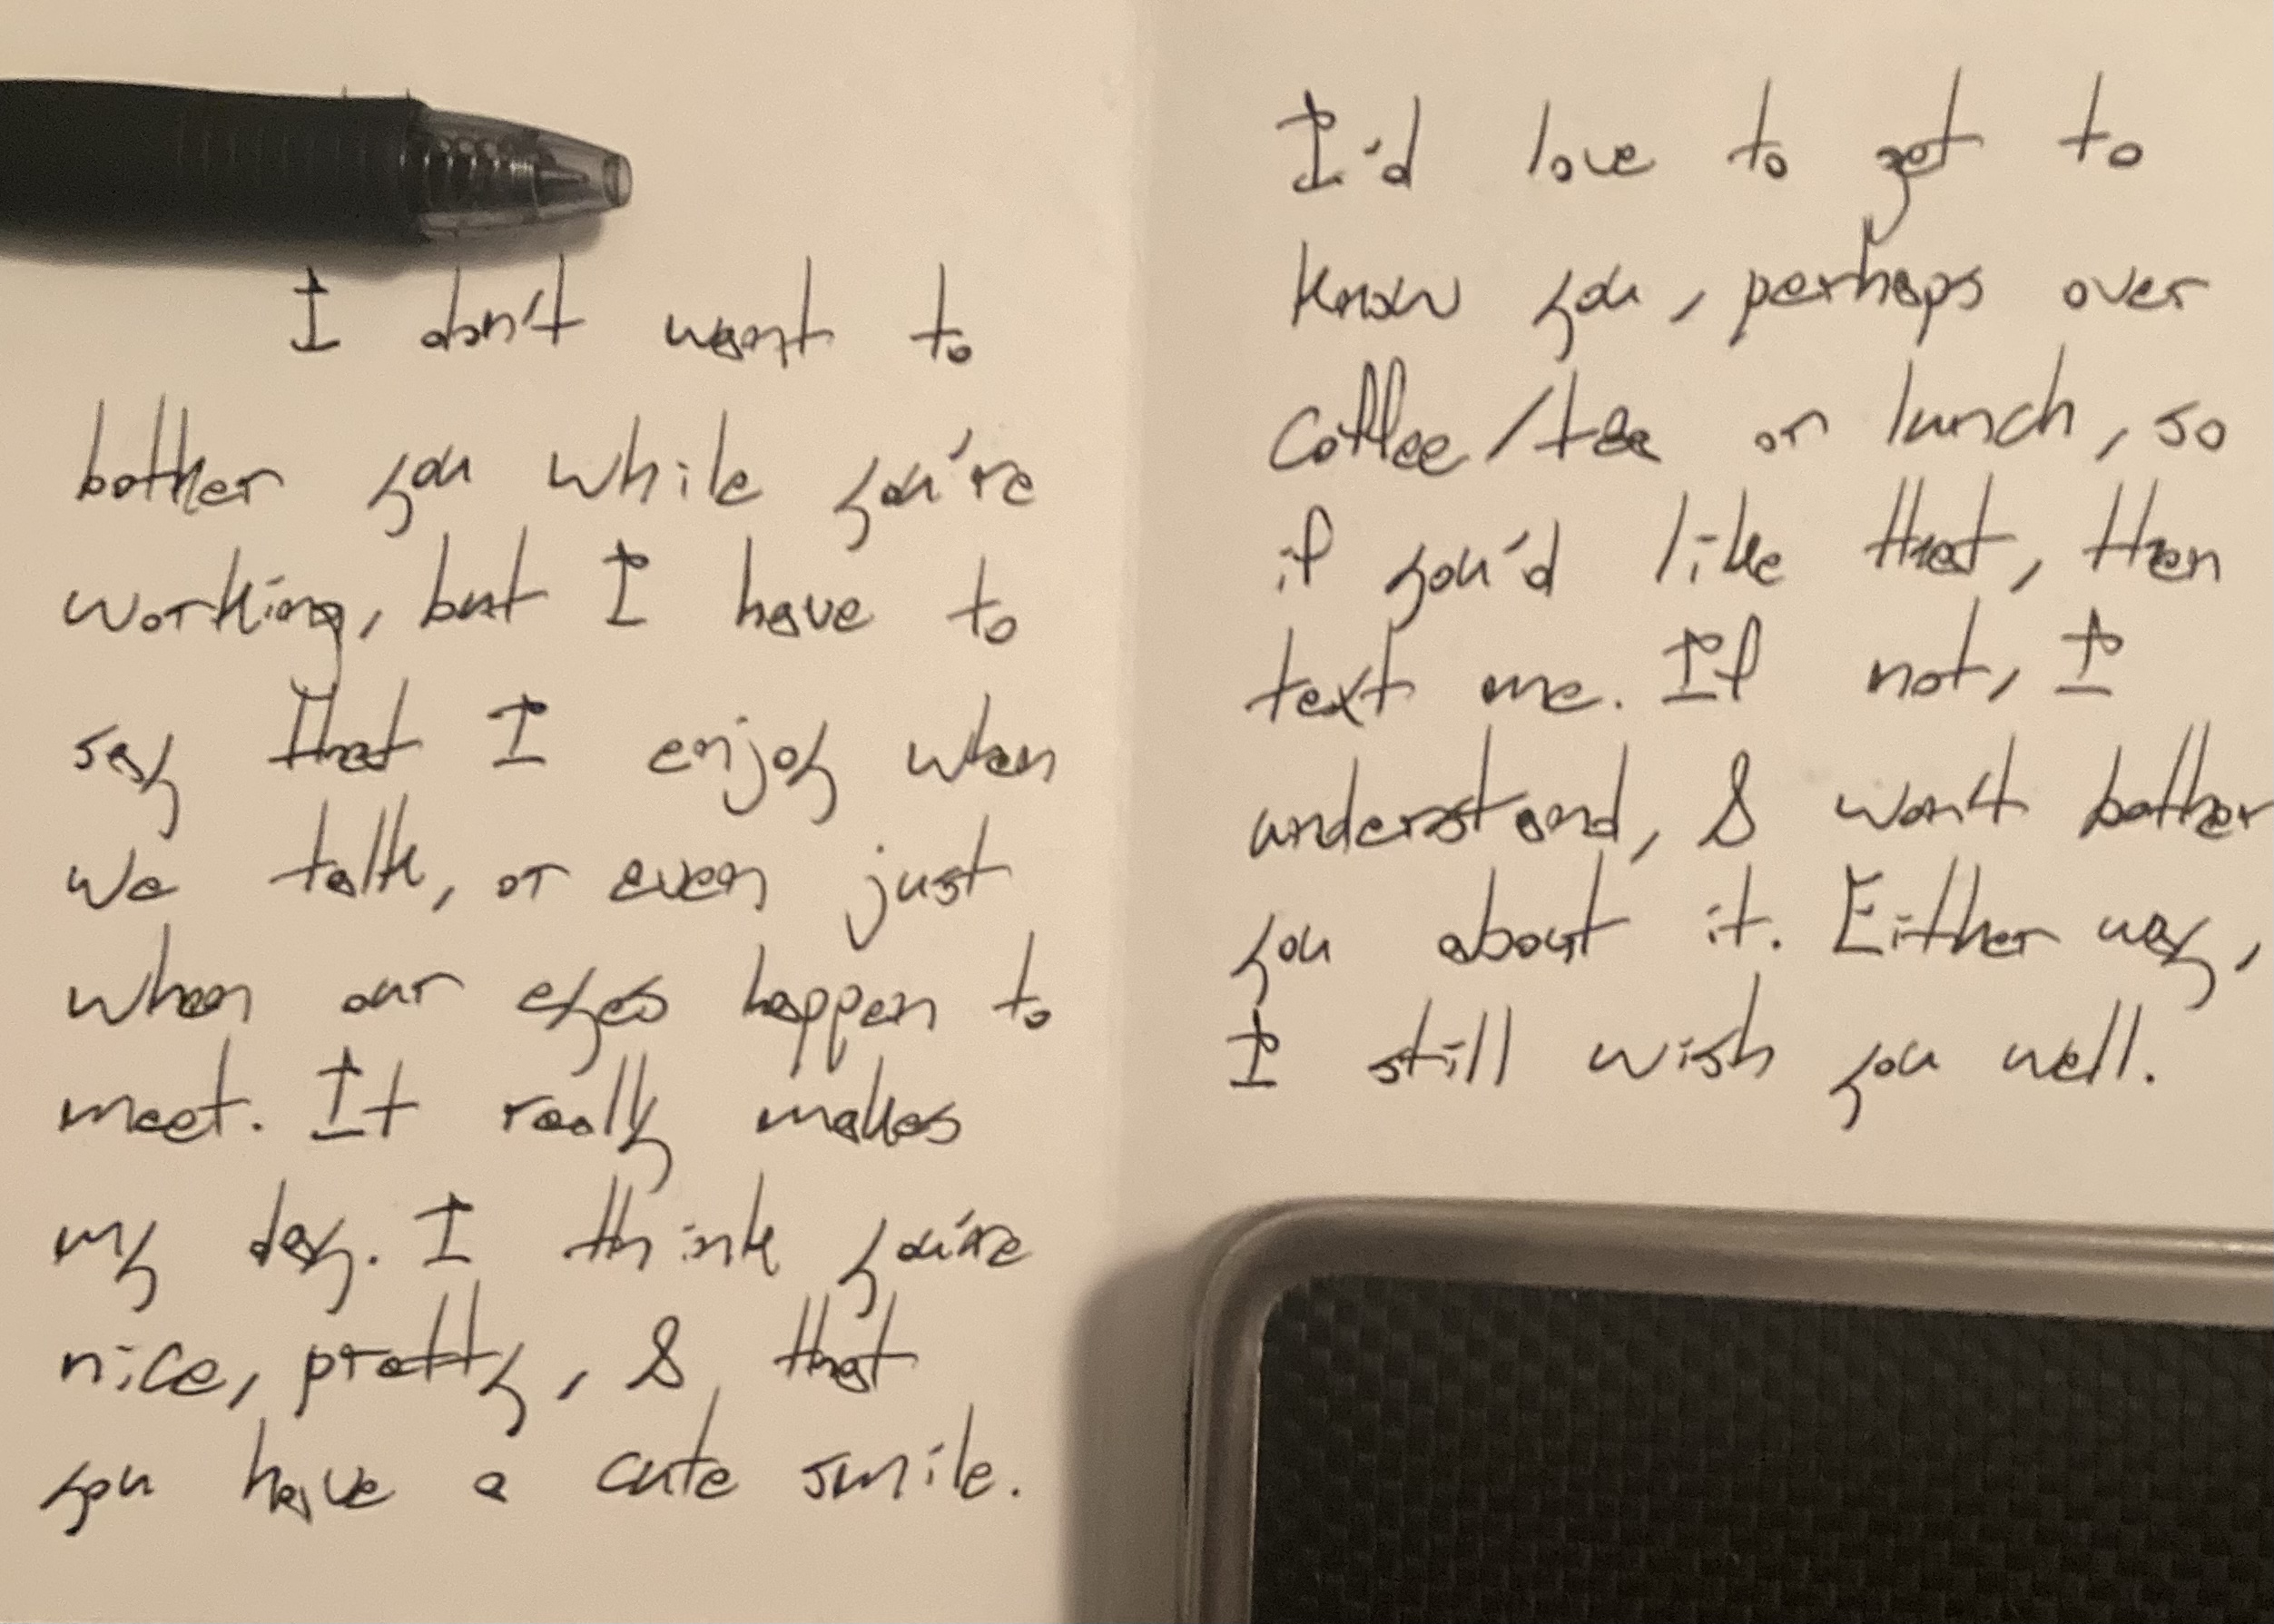 I don't want to
bother you while you're
working, but I have to
say that I enjoy when
we talk, or even just
when our eyes happen to
meet. It really makes
my day. I think you're
nice, pretty, & that
you have a cute smile.
I'd love to get to
know you, perhaps over
coffee/tea or lunch, so
if you'd like that, then
text me. If not, I
understand, & won't bother
you about it. Either way,
I still wish you well.